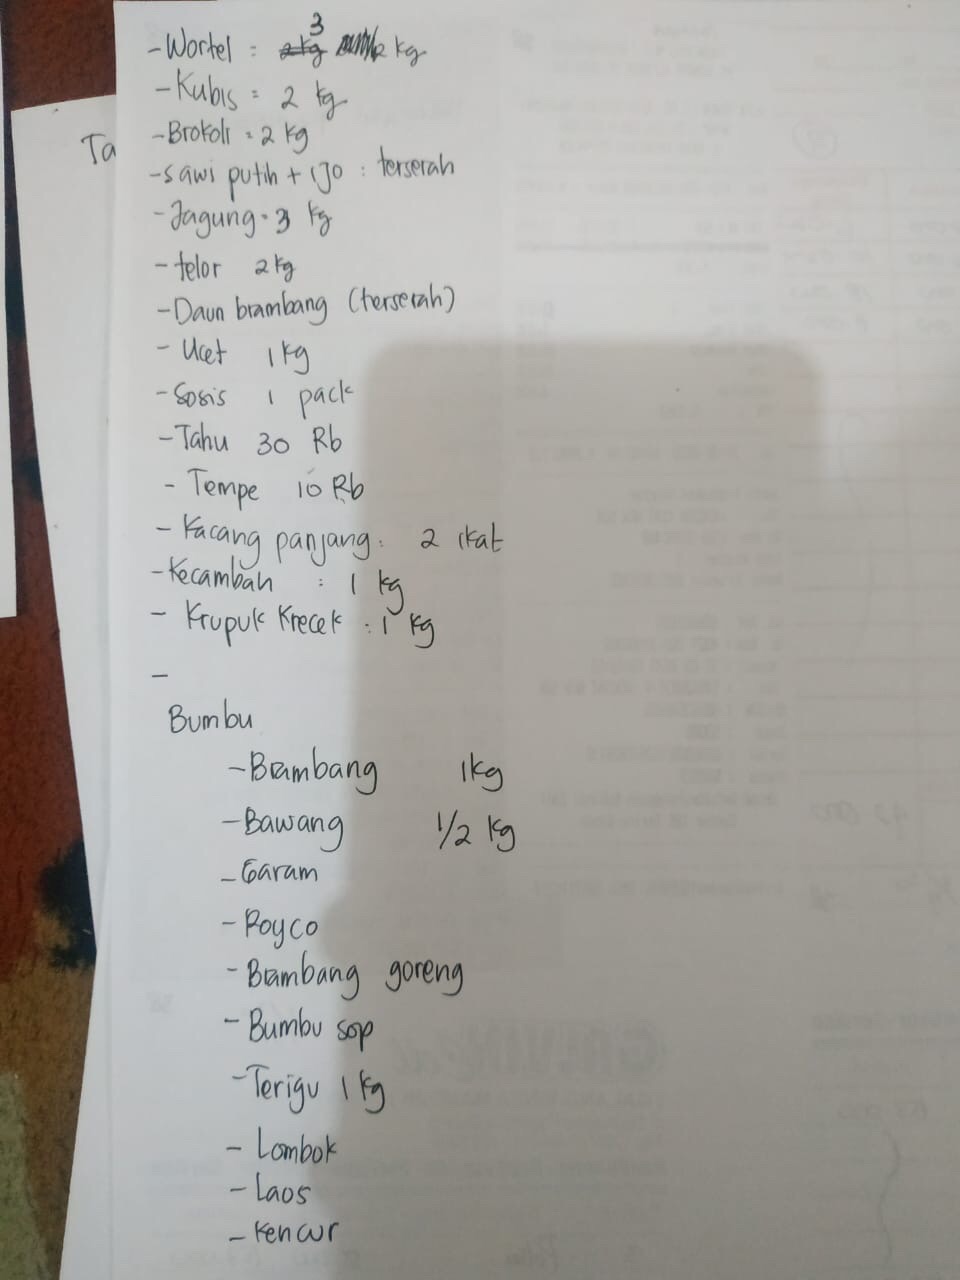 - Wortel : 3 kg
- Kubis = 2 kg
- Brokoli = 2 kg
Ta
- sawi putih + ijo : terserah
- Jagung = 3 kg
- telor 2 kg
- Daun brambang (terserah)
- Ucet 1 kg
- Sosis 1 pack
- Tahu 30 Rb
- Tempe 10 Rb
- Kacang panjang : 2 ikat
- Kecambah : 1 kg
- Krupuk Krecek : 1 kg
-
Bumbu
- Brambang 1 kg
- Bawang 1/2 kg
- Garam
- Royco
- Brambang goreng
- Bumbu sop
- Terigu 1 kg
- Lombok
- Laos
- Kencur